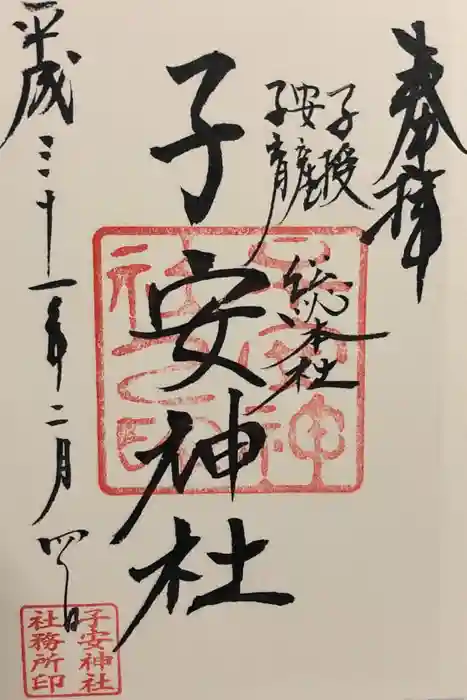 奉拝
子授
安産
子育
総本社
子安神社
平成三十一年二月四日
子安神社
社務所印